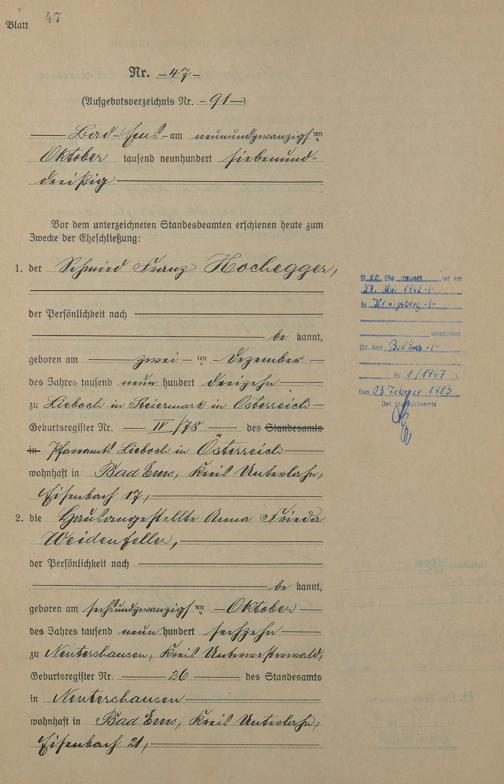 Blatt 47
Nr. -47-
(Aufgebotsverzeichnis Nr. -91-)
Bad-Ems-am neunundzwanzigsten
Oktober tausend neunhundert siebenund-
dreißig
Vor dem unterzeichneten Standesbeamten erschienen heute zum
Zwecke der Eheschließung:
1. der Schmied Franz Hochegger,
der Persönlichkeit nach
be kannt,
geboren am zwei-ten Dezember
des Jahres tausend neun hundert dreizehn
zu Lieboch in Steiermark in Österreich
Geburtsregister Nr. IV/78 des Standesamts
in Pfarramts Lieboch in Österreich
wohnhaft in Bad Ems, Kreis Unterlahn,
Eisenbach 17,
2. die Hausangestellte Anna Frieda
Weidenfeller,
der Persönlichkeit nach
be kannt,
geboren am sechsundzwanzigsten Oktober
des Jahres tausend neun hundert sechzehn
zu Nentershausen, Kreis Unterwesterwald,
Geburtsregister Nr. 26 des Standesamts
in Nentershausen
wohnhaft in Bad Ems, Kreis Unterlahn,
Eisenbach 21,
Ehe ist am
27. Mai
in
verstorben
(St. Amt Bad Ems -/-
Nr. 1/1947 ).
Den 03. Februar 1983
Der Standesbeamte